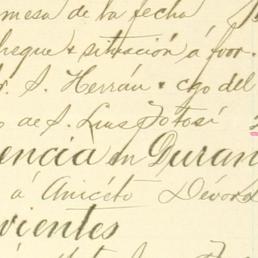 mesa de la fecha
heque & situación á fvor.
r. S. Herrán & cgo del
o de S. Luis Potosí
encia en Duran
á Aniceto Dévora
vientes